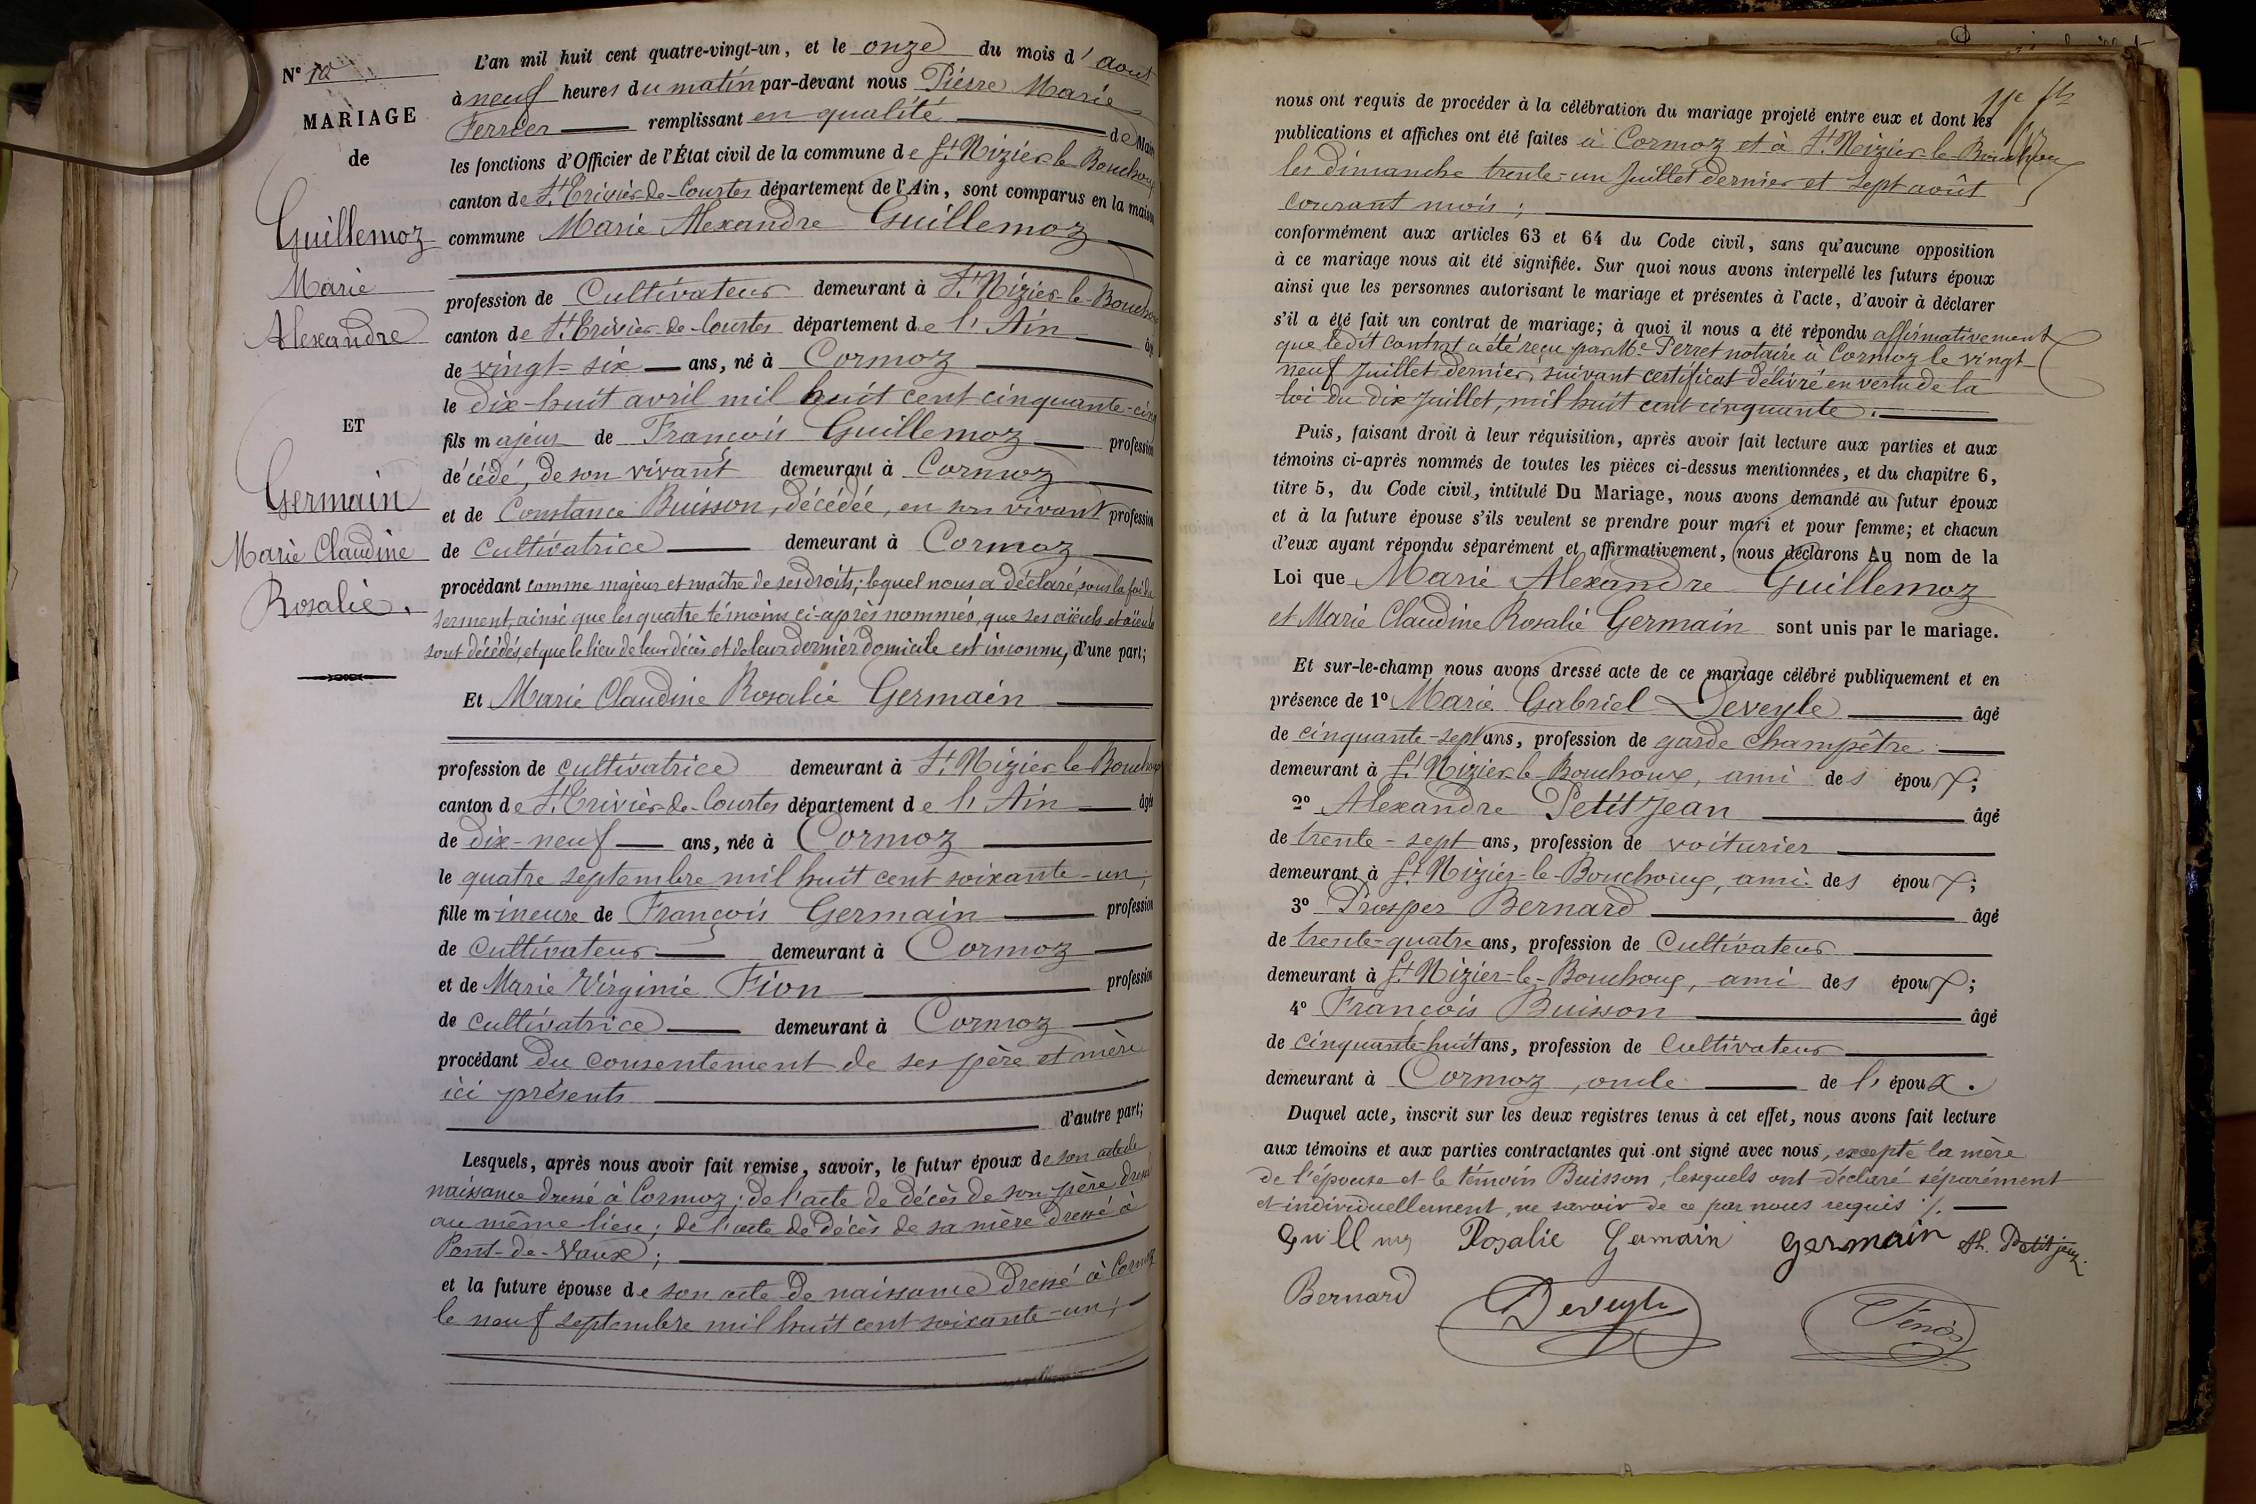 N° 10
MARIAGE
de
Guillemoz
Marie
Alexandre
ET
Germain
Marie Claudine
Rosalie.
L'an mil huit cent quatre-vingt-un, et le onze du mois d'août
à neuf heures du matin par-devant nous Pierre Marie
remplissant en qualité de Maire
les fonctions d'Officier de l'État civil de la commune de St Nizier-le-Bouchoux
canton de St Trivier-de-Courtes département de l'Ain, sont comparus en la maison
commune Marie Alexandre Guillemoz
profession de Cultivateur demeurant à St Nizier-le-Bouchoux
canton de St Trivier-de-Courtes département de l'Ain âgé
de vingt-six ans, né à Cormoz
le dix-huit avril mil huit cent cinquante-cinq
fils majeur de François Guillemoz profession
décédé, de son vivant demeurant à Cormoz
et de Constance Buisson, décédée, en son vivant profession
de cultivatrice demeurant à Cormoz
procédant comme majeur et maître de ses droits; lequel nous a déclaré, sous la foi du
serment, ainsi que les quatre témoins ci-après nommés, que ses aïeuls et aïeules
sont décédés, et que le lieu de leur décès et de leur dernier domicile est inconnu, d'une part;
Et Marie Claudine Rosalie Germain
profession de cultivatrice demeurant à St Nizier-le-Bouchoux
canton de St Trivier-de-Courtes département de l'Ain âgée
de dix-neuf ans, née à Cormoz
le quatre septembre mil huit cent soixante-un;
fille mineure de François Germain profession
de cultivateur demeurant à Cormoz
et de Marie Virginie Fion profession
de cultivatrice demeurant à Cormoz
procédant du consentement de ses père et mère
ici présents
d'autre part;
Lesquels, après nous avoir fait remise, savoir, le futur époux de son acte de
naissance dressé à Cormoz; de l'acte de décès de son père dressé
au même lieu; de l'acte de décès de sa mère dressé à
Pont-de-Vaux;
et la future épouse de son acte de naissance dressé à Cormoz
le neuf septembre mil huit cent soixante-un;
nous ont requis de procéder à la célébration du mariage projeté entre eux et dont les
publications et affiches ont été faites à Cormoz et à St Nizier-le-Bouchoux
les dimanche trente-un Juillet dernier et sept août
courant mois;
conformément aux articles 63 et 64 du Code civil, sans qu'aucune opposition
à ce mariage nous ait été signifiée. Sur quoi nous avons interpellé les futurs époux
ainsi que les personnes autorisant le mariage et présentes à l'acte, d'avoir à déclarer
s'il a été fait un contrat de mariage; à quoi il nous a été répondu affirmativement
que ledit contrat a été reçu par Me Perret notaire à Cormoz le vingt-
neuf Juillet dernier, suivant certificat délivré en vertu de la
loi du dix Juillet, mil huit cent cinquante.
Puis, faisant droit à leur réquisition, après avoir fait lecture aux parties et aux
témoins ci-après nommés de toutes les pièces ci-dessus mentionnées, et du chapitre 6,
titre 5, du Code civil, intitulé Du Mariage, nous avons demandé au futur époux
et à la future épouse s'ils veulent se prendre pour mari et pour femme; et chacun
d'eux ayant répondu séparément et affirmativement, nous déclarons Au nom de la
Loi que Marie Alexandre Guillemoz
et Marie Claudine Rosalie Germain sont unis par le mariage.
Et sur-le-champ nous avons dressé acte de ce mariage célébré publiquement et en
présence de 1° Marie Gabriel Deveyle âgé
de cinquante-sept ans, profession de garde champêtre
demeurant à St Nizier-le-Bouchoux, ami des époux;
2° Alexandre Petitjean âgé
de trente-sept ans, profession de voiturier
demeurant à St Nizier-le-Bouchoux, ami des époux;
3° Prosper Bernard âgé
de trente-quatre ans, profession de Cultivateur
demeurant à St Nizier-le-Bouchoux, ami des époux;
4° François Buisson âgé
de cinquante-huit ans, profession de Cultivateur
demeurant à Cormoz, oncle de l'époux.
Duquel acte, inscrit sur les deux registres tenus à cet effet, nous avons fait lecture
aux témoins et aux parties contractantes qui ont signé avec nous, excepté la mère
de l'épouse et le témoin Buisson, lesquels ont déclaré séparément
et individuellement, ne savoir de ce par nous requis ./.
Rosalie Germain germain Al. Petitjean
Bernard Deveyle